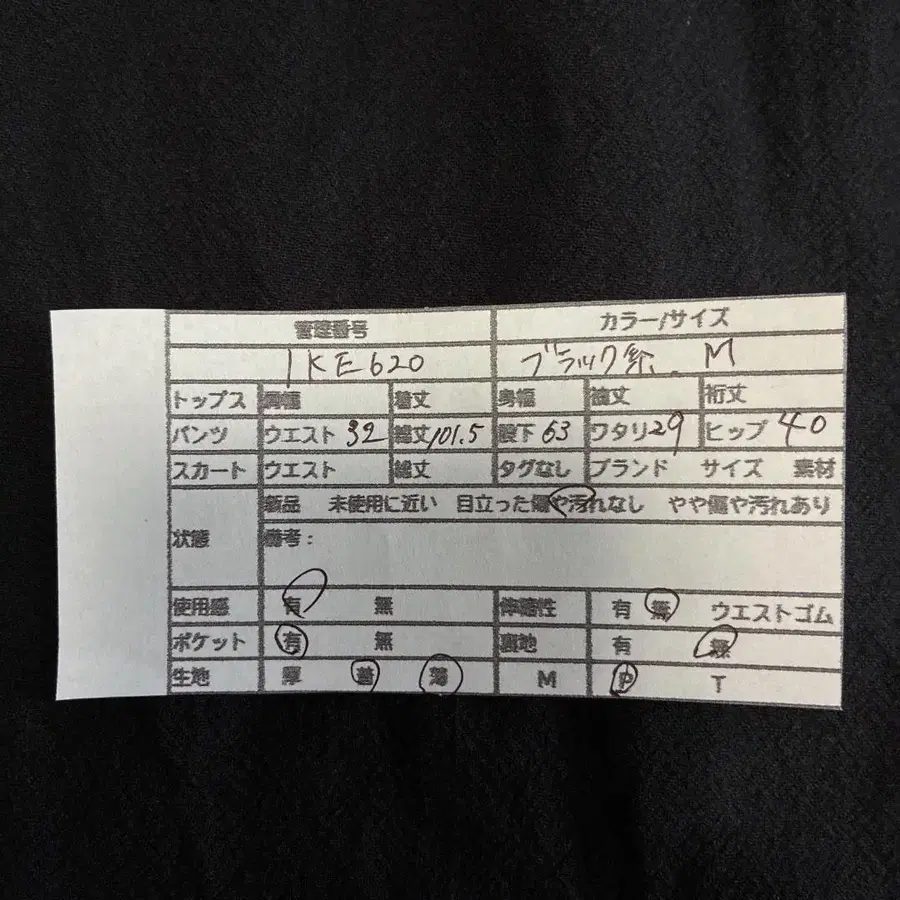 管理番号 カラー/サイズ
1KE620 ブラック系. M
トップス 肩幅 着丈 身幅 袖丈 裄丈
パンツ ウエスト 32 総丈 101.5 股下 63 ワタリ 29 ヒップ 40
スカート ウエスト 総丈 タグなし ブランド サイズ 素材
状態 新品 未使用に近い 目立った傷や汚れなし やや傷や汚れあり
備考:
使用感 有 無 伸縮性 有 無 ウエストゴム
ポケット 有 無 裏地 有 無
生地 厚 普 薄 M P T